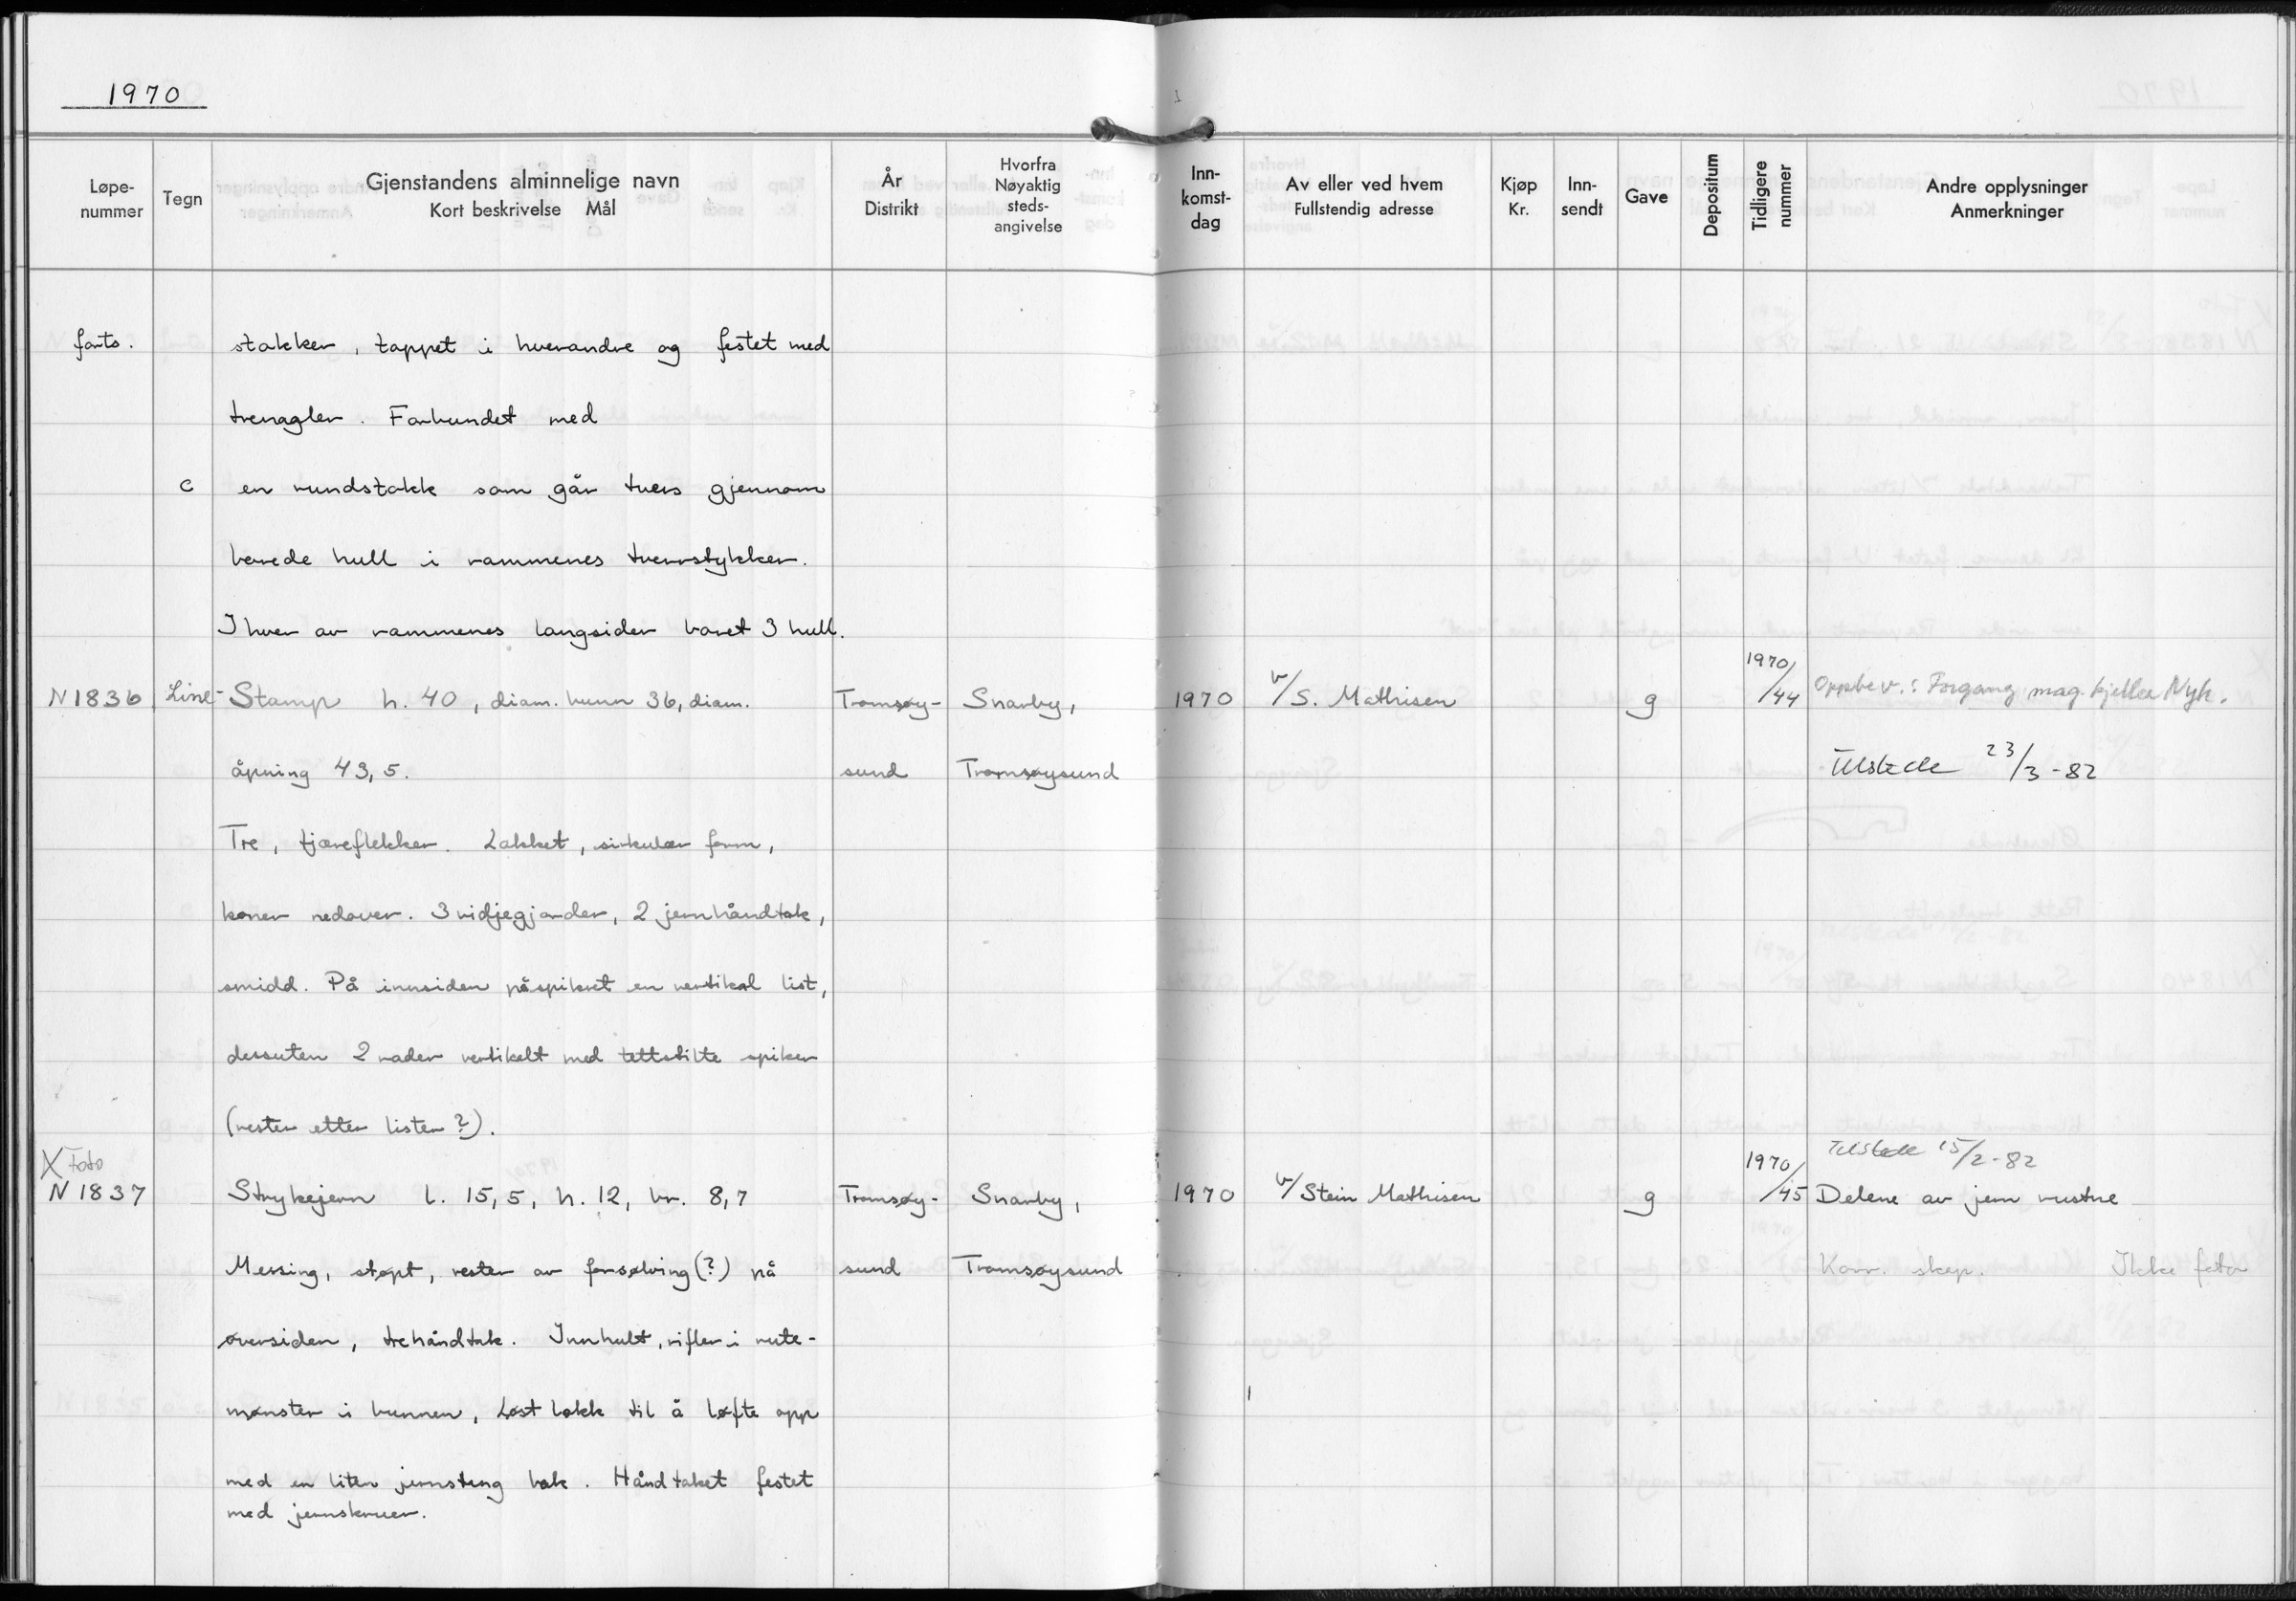 1970
Løpe-nummer Tegn Gjenstandens alminnelige navn Kort beskrivelse Mål År Distrikt Hvorfra Nøyaktig steds-angivelse Inn-komst-dag Av eller ved hvem Fullstendig adresse Kjøp Kr. Inn-sendt Gave Depositum Tidligere nummer Andre opplysninger Anmerkninger
forts. stokker, tappet i hverandre og festet med
trenagler. Forbundet med
c en rundstokk som går tvers gjennom
borede hull i rammenes tverrstykker.
I hver av rammenes langsider boret 3 hull.
N 1836 Line- Stamp h. 40, diam. bunn 36, diam. Tromsøy- Snarby, 1970 v/S. Mathisen g 1970/44 Oppbev.: Forgang mag. kjeller Nyk.
åpning 43,5. sund Tromsøysund Tilstede 23/3-82
Tre, tjæreflekker. Lakket, sirkulær form,
koner nedover. 3 vidjegjorder, 2 jernhåndtak,
smidd. På innsiden påspikret en vertikal list,
dessuten 2 rader vertikalt med tettstilte spiker
(rester etter lister?).
X Foto Tilstede 15/2-82
N 1837 Strykejern l. 15,5, h. 12, br. 8,7 Tromsøy- Snarby, 1970 v/Stein Mathisen g 1970/45 Delene av jern rustne
Messing, støpt, rester av forsølving(?) på sund Tromsøysund Konr. skap. Ikke foto
oversiden, trehåndtak. Innhult, rifler i rute-
mønster i bunnen, Løst lokk til å løfte opp
med en liten jernstang bak. Håndtaket festet
med jernskruer.